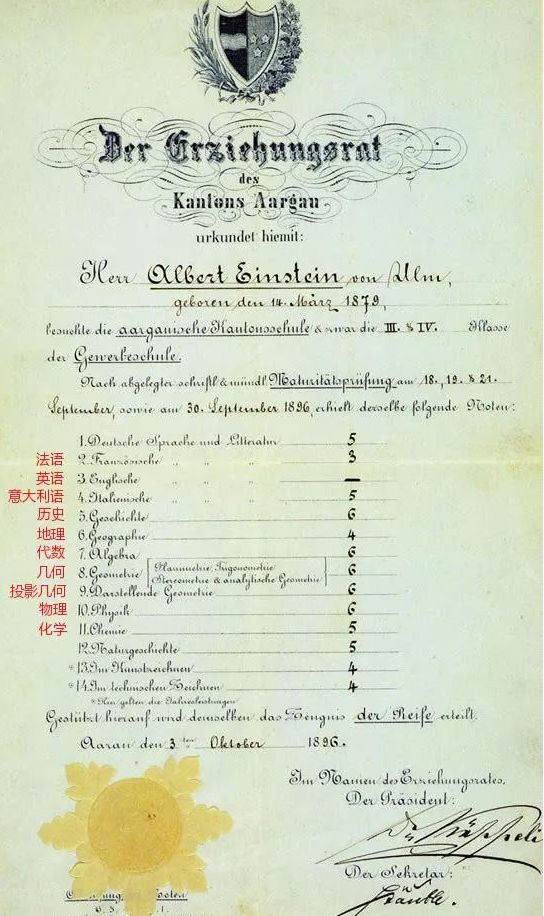 Der Erziehungsrat
des
Kantons Aargau
urkundet hiemit:
Herr Albert Einstein von Ulm,
geboren den 14. März 1879,
besuchte die aargauische Kantonsschule & zwar die III. & IV. Klasse
der Gewerbeschule.
Nach abgelegter schriftl. & mündl. Maturitätsprüfung am 18., 19. & 21.
September, sowie am 30. September 1896, erhielt derselbe folgende Noten:
1. Deutsche Sprache und Litteratur 5
法语 2. Französische " " " 3
英语 3. Englische " " " —
意大利语 4. Italienische " " " 5
历史 5. Geschichte 6
地理 6. Geographie 4
代数 7. Algebra 6
几何 8. Geometrie [Planimetrie, Trigonometrie Stereometrie & analytische Geometrie] 6
投影几何 9. Darstellende Geometrie 6
物理 10. Physik 6
化学 11. Chemie 5
12. Naturgeschichte 5
*13. Im Kunstzeichnen 4
*14. Im technischen Zeichnen 4
*Hier gelten die Jahresleistungen.
Gestützt hierauf wird demselben das Zeugnis der Reife erteilt.
Aarau den 3ten Oktober 1896.
Im Namen des Erziehungsrates,
Der Präsident:
Der Sekretär: